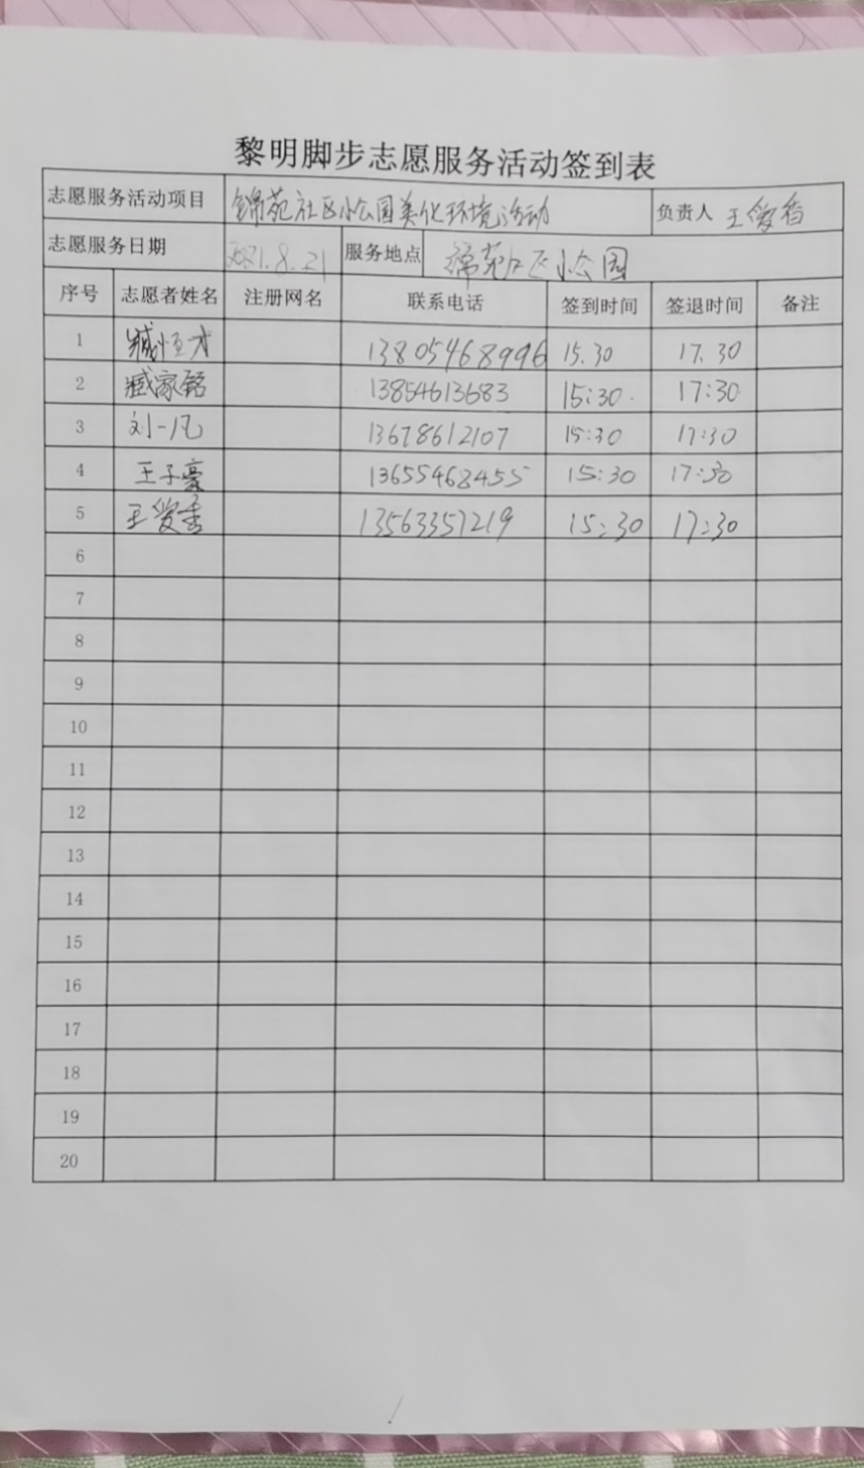 黎明脚步志愿服务活动签到表
志愿服务活动项目 锦苑社区小公园美化环境活动 负责人 王爱香
志愿服务日期 2021.8.21 服务地点 锦苑社区小公园
序号 志愿者姓名 注册网名 联系电话 签到时间 签退时间 备注
1 臧恒才 13805468996 15.30 17.30
2 臧家铭 13854613683 15:30 17:30
3 刘一凡 13678612107 15:30 17:30
4 王子豪 13655468455 15:30 17:30
5 王爱香 13563357219 15:30 17:30
6
7
8
9
10
11
12
13
14
15
16
17
18
19
20